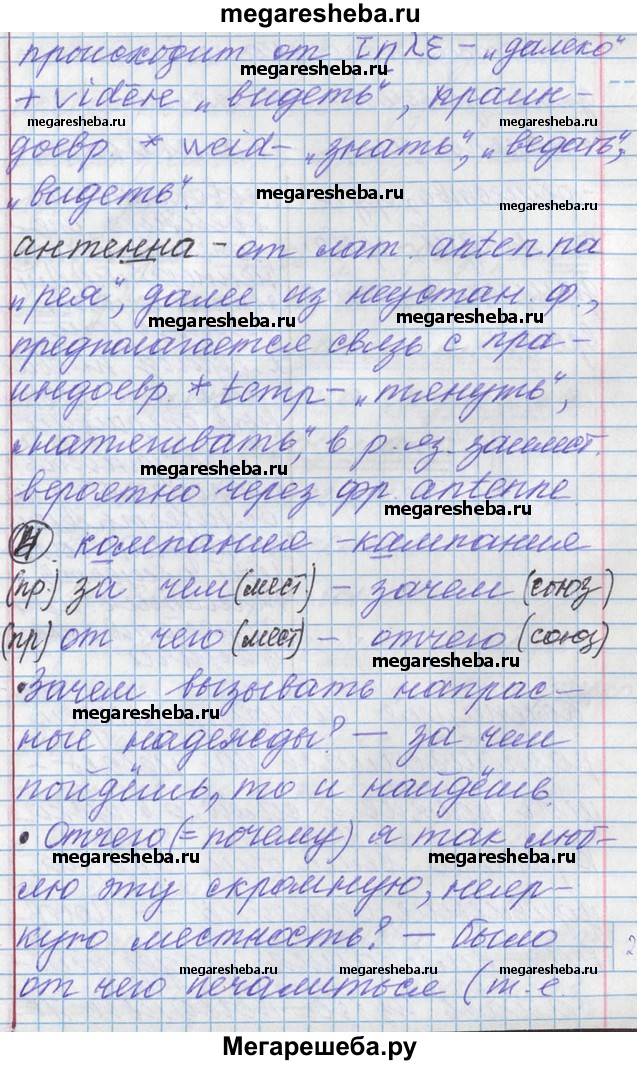 megaresheba.ru
происходит от τηλε – „далеко“
megaresheba.ru
+ vidēre „видеть“, праин-
megaresheba.ru megaresheba.ru
доевр. * weid- „знать“, „ведать“,
„видеть“.
megaresheba.ru
антенна – от лат. antenna
„рея“, далее из неустан. ф.,
megaresheba.ru megaresheba.ru
предполагается связь с пра-
индоевр. * temp- „тянуть“,
„натягивать“, в р. яз. заимст.
megaresheba.ru
вероятно через фр. antenne
4 компания – кампания
megaresheba.ru
(пр) за чем (мест) – зачем (союз)
(пр) от чего (мест) – отчего (союз)
megaresheba.ru
• Зачем вызывать напрас-
megaresheba.ru megaresheba.ru
ные надежды? – за чем
пойдёшь, то и найдёшь.
• Отчего (= почему) я так люб-
megaresheba.ru megaresheba.ru
лю эту скромную, неяр-
кую местность? – было
от чего печалиться (т.е.
megaresheba.ru megaresheba.ru megaresheba.ru
Мегарешеба.ру